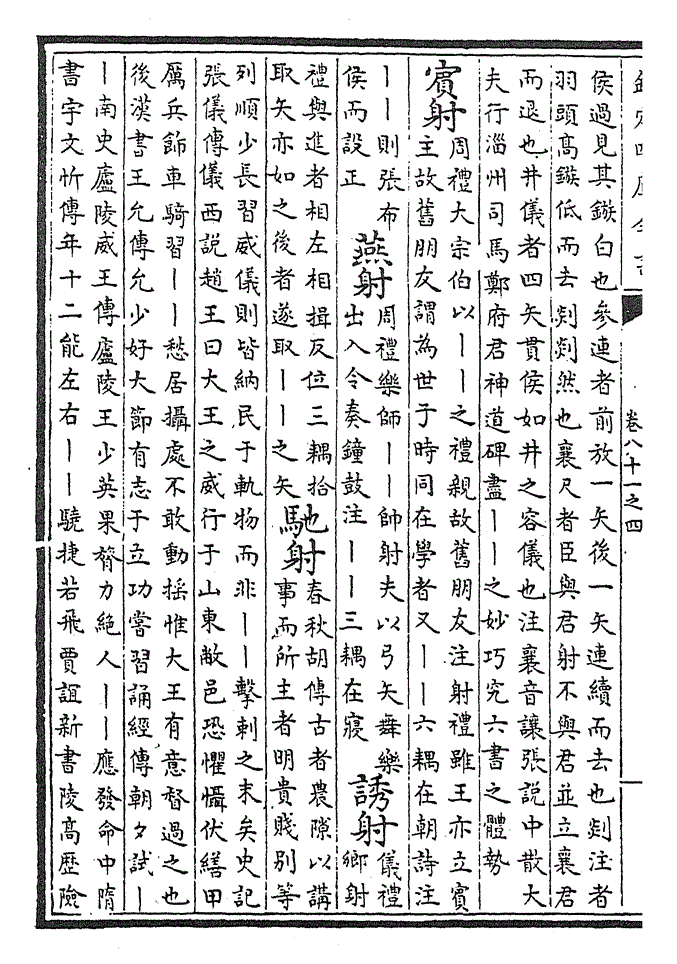 欽定四庫全書
卷八十一之四
侯過見其鏃白也參連者前放一矢後一矢連續而去也剡注者
羽頭髙鏃低而去剡剡然也襄尺者臣與君射不與君並立襄君
而退也井儀者四矢貫侯如井之容儀也注襄音讓張説中散大
夫行淄州司馬鄭府君神道碑盡丨丨之妙巧究六書之體勢
賓射
周禮大宗伯以丨丨之禮親故舊朋友注射禮雖王亦立賓
主故舊朋友謂為世子時同在學者又丨丨六耦在朝詩注
丨丨則張布
侯而設正
燕射
周禮樂師丨丨帥射夫以弓矢舞樂
出入令奏鐘鼓注丨丨三耦在寢
誘射
儀禮
鄉射
禮與進者相左相揖反位三耦拾
取矢亦如之後者遂取丨丨之矢
馳射
春秋胡傳古者農隙以講
事而所主者明貴賤别等
列順少長習威儀則皆納民于軌物而非丨丨擊刺之末矣史記
張儀傳儀西説趙王曰大王之威行于山東敝邑恐懼懾伏繕甲
厲兵飾車騎習丨丨愁居攝處不敢動揺惟大王有意督過之也
後漢書王允傳允少好大節有志于立功嘗習誦經傳朝夕試丨
丨南史廬陵威王傳廬陵王少英果膂力絶人丨丨應發命中隋
書宇文忻傳年十二能左右丨丨驍捷若飛賈誼新書陵髙歴險